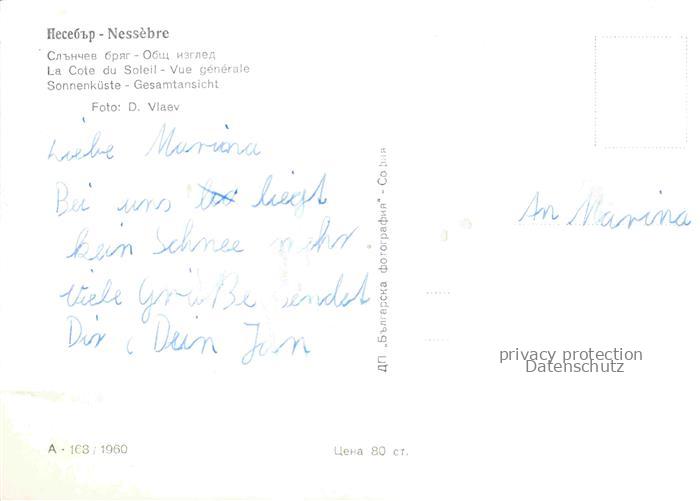 Несебър - Nessèbre
Слънчев бряг - Общ изглед
La Cote du Soleil - Vue générale
Sonnenküste - Gesamtansicht
Foto: D. Vlaev
Liebe Marina
Bei uns liegt
kein Schnee mehr
Viele Grüße sendet
Dir, Dein Jan
ДП „Българска фотография" - София
An Marina
privacy protection
Datenschutz
А - 163 / 1960
Цена 80 ст.